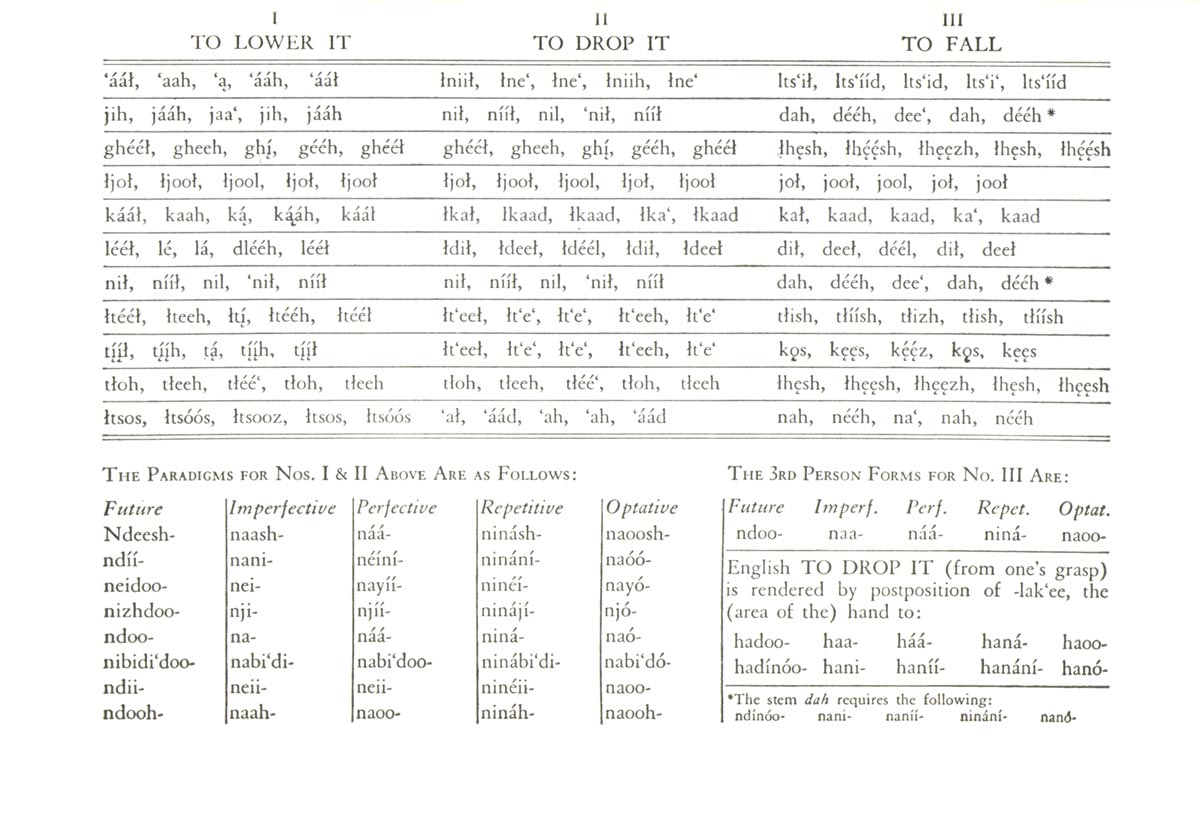 I II III
TO LOWER IT TO DROP IT TO FALL
‘ááł, ‘aah, ‘ą, ‘ááh, ‘ááł łniił, łne‘, łne‘, łniih, łne‘ lts‘ił, lts‘ííd, lts‘id, lts‘i‘, lts‘ííd
jih, jááh, jaa‘, jih, jááh nił, nííł, nil, ‘nił, nííł dah, dééh, dee‘, dah, dééh *
ghééł, gheeh, ghį́, gééh, ghééł ghééł, gheeh, ghį́, gééh, ghééł łhęsh, łhę́ę́sh, łhęęzh, łhęsh, łhę́ę́sh
łjoł, łjooł, łjool, łjoł, łjooł łjoł, łjooł, łjool, łjoł, łjooł joł, jooł, jool, joł, jooł
kááł, kaah, ką́, ką́ą́h, kááł łkał, łkaad, łkaad, łka‘, łkaad kał, kaad, kaad, ka‘, kaad
lééł, lé, lá, dlééh, lééł łdił, łdeeł, łdéél, łdił, łdeeł dił, deeł, déél, dił, deeł
nił, nííł, nil, ‘nił, nííł nił, nííł, nil, ‘nił, nííł dah, dééh, dee‘, dah, dééh *
łtééł, łteeh, łtį́, łtééh, łtééł łt‘eeł, łt‘e‘, łt‘e‘, łt‘eeh, łt‘e‘ tłish, tłíísh, tłizh, tłish, tłíísh
tį́į́ł, tį́į́h, tą́, tį́į́h, tį́į́ł łt‘eeł, łt‘e‘, łt‘e‘, łt‘eeh, łt‘e‘ kǫs, kęęs, kę́ę́z, kǫs, kęęs
tłoh, tłeeh, tłéé‘, tłoh, tłeeh tłoh, tłeeh, tłéé‘, tłoh, tłeeh łhęsh, łhęęsh, łhęęzh, łhęsh, łhęęsh
łtsos, łtsóós, łtsooz, łtsos, łtsóós ‘ał, ‘áád, ‘ah, ‘ah, ‘áád nah, nééh, na‘, nah, nééh
The Paradigms for Nos. I & II Above Are as Follows:
Future Imperfective Perfective Repetitive Optative
Ndeesh- naash- náá- ninásh- naoosh-
ndíí- nani- néíní- ninání- naóó-
neidoo- nei- nayíí- ninéí- nayó-
nizhdoo- nji- njíí- ninájí- njó-
ndoo- na- náá- niná- naó-
nibidi‘doo- nabi‘di- nabi‘doo- ninábi‘di- nabi‘dó-
ndii- neii- neii- ninéii- naoo-
ndooh- naah- naoo- nináh- naooh-
The 3rd Person Forms for No. III Are:
Future Imperf. Perf. Repet. Optat.
ndoo- naa- náá- niná- naoo-
English TO DROP IT (from one's grasp)
is rendered by postposition of -lak‘ee, the
(area of the) hand to:
hadoo- haa- háá- haná- haoo-
hadínóo- hani- haníí- hanání- hanó-
*The stem dah requires the following:
ndínóo- nani- naníí- ninání- nanó-